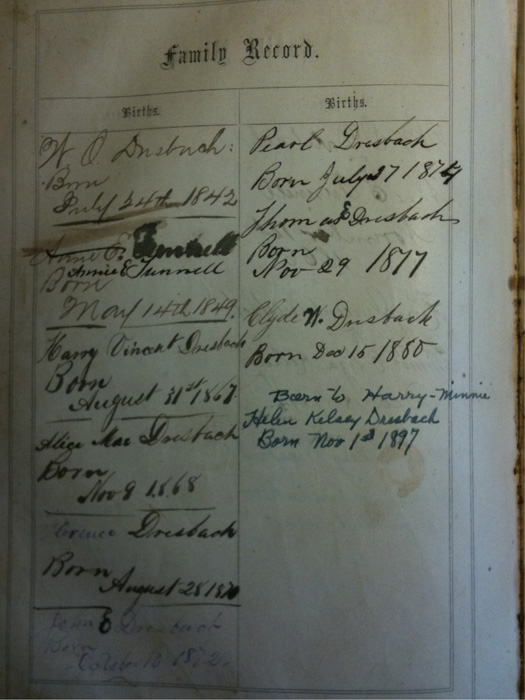 Family Record.
Births.
W O Dresbach:
Born
July 24th 1842
Annie E. Funnell
Annie E Funnell
Born
May 14th 1849.
Harry Vincent Dresbach
Born
August 31st 1867.
Alice Mae Dresbach
Born
Nov 9 1868
Florence Dresbach
Born
August 28 1870
E Dresbach
Born
1872.
Births.
Pearl Dresbach
Born July 27 1874
Thomas E Dresbach
Born
Nov 29 1877
Clyde W. Dresbach
Born Dec 15 1880
Born to Harry-Minnie
Helen Kelsey Dresbach
Born Nov 1st 1897